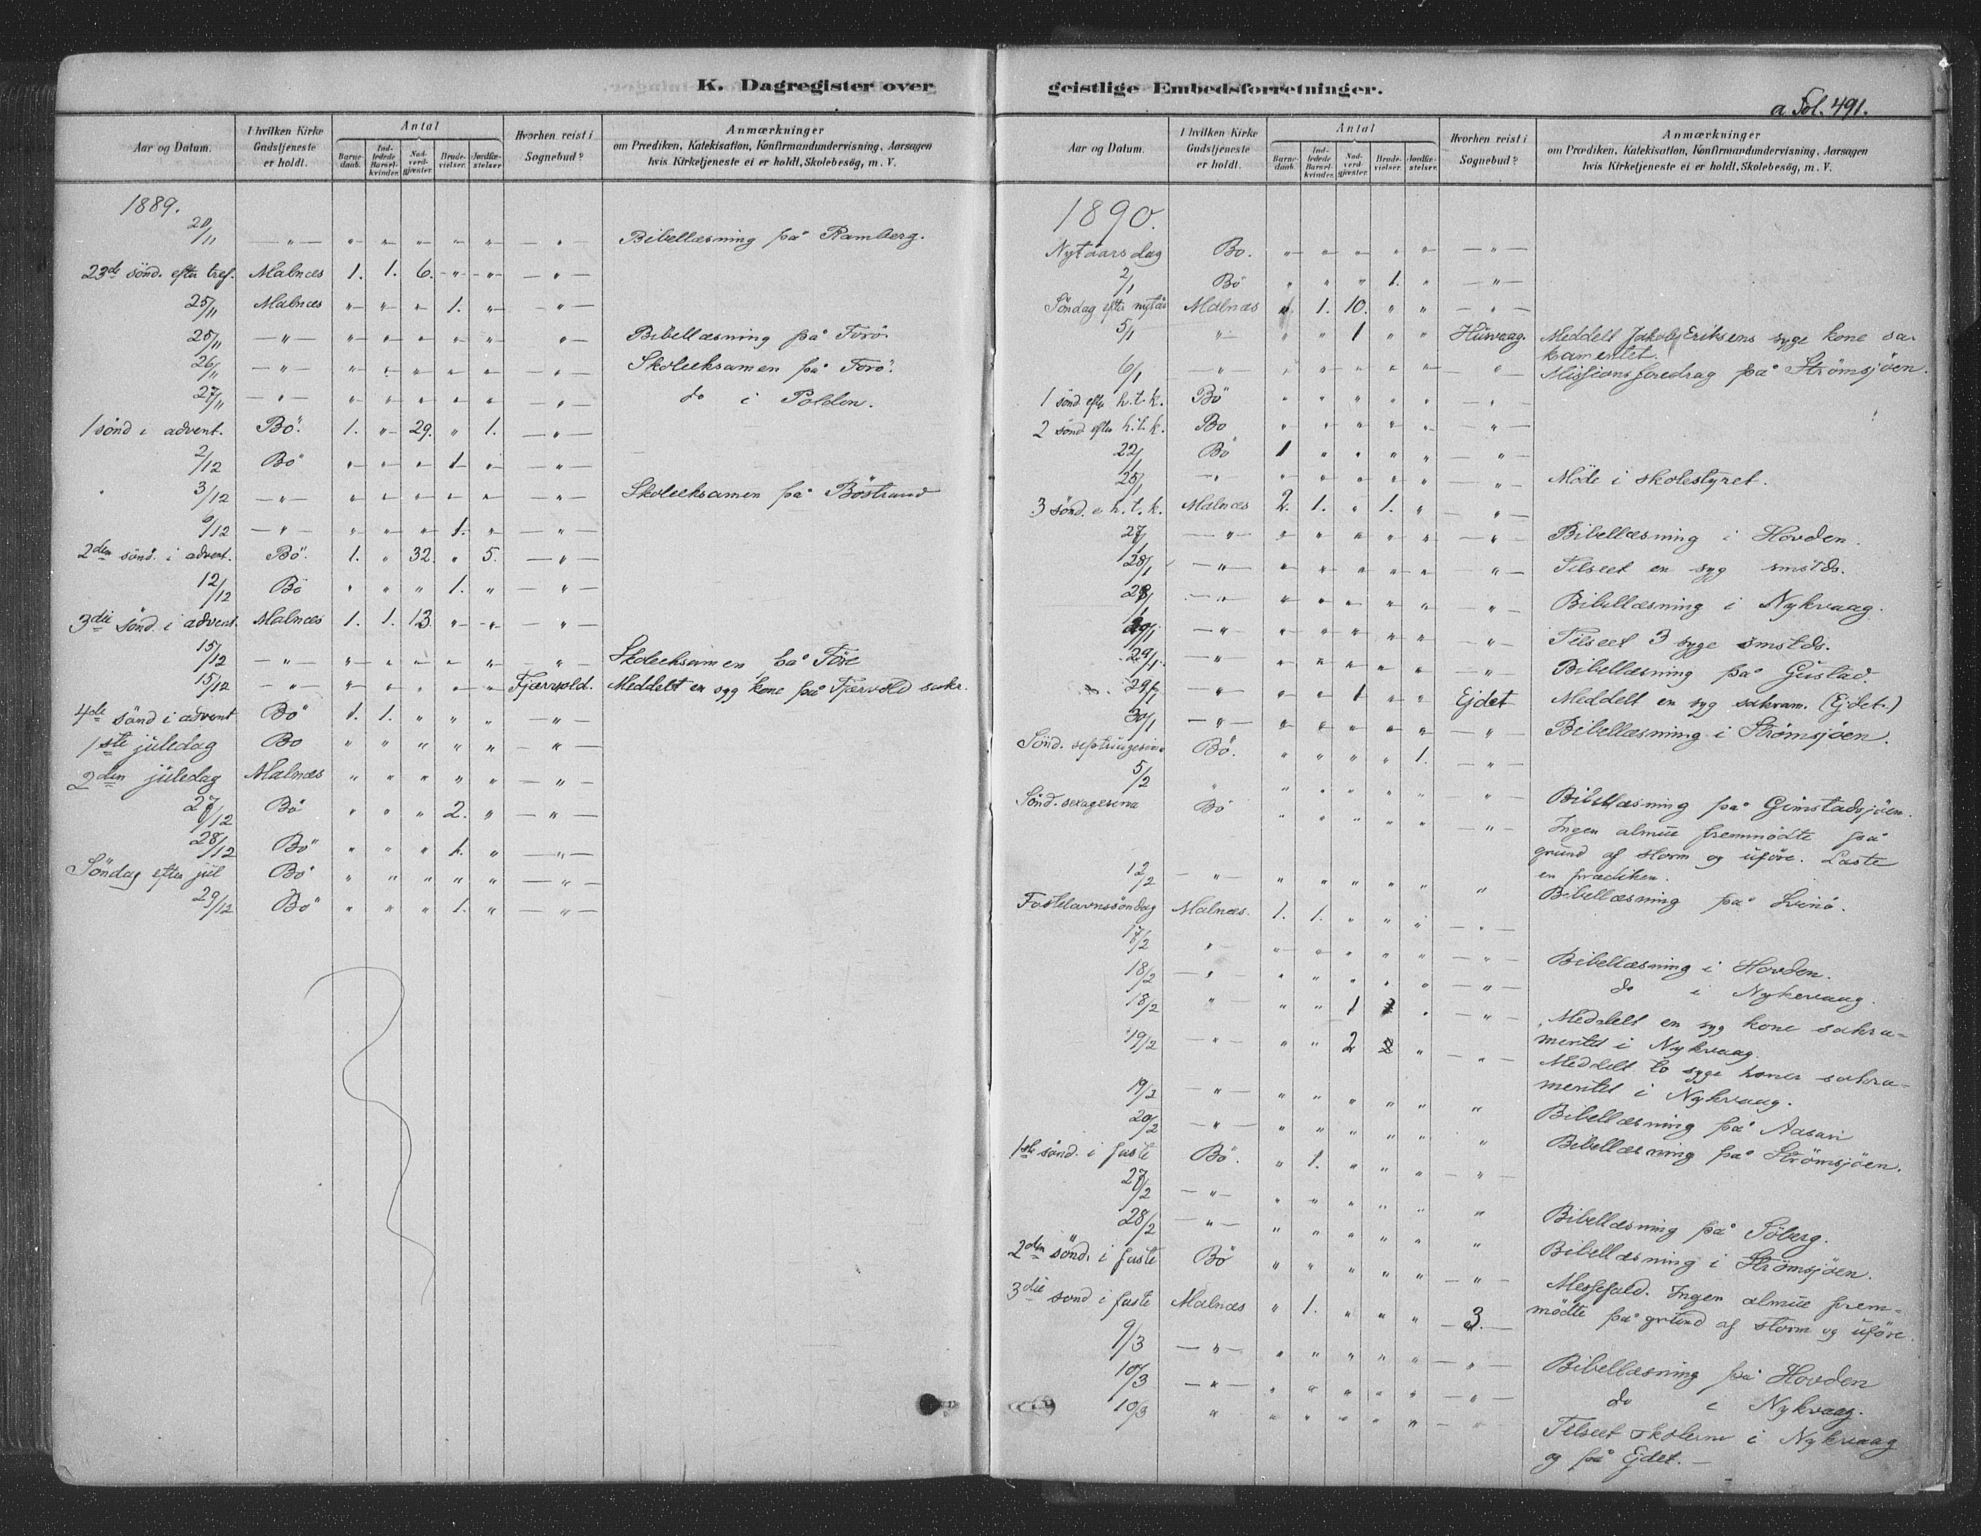 K. Dagregister over
Aar og Datum. | I hvilken Kirke Gudstjeneste er holdt. | Antal | Barnedaab. | Indledede Barselkvinder. | Nadverdgjæster. | Brudevielser. | Jordfæstelser. | Hvorhen reist i Sognebud? | Anmærkninger om Prædiken, Katekisation, Konfirmandundervisning, Aarsagen hvis Kirketjeneste ei er holdt, Skolebesög, m. V.
1889.
20/11 — " — " " " " " — " — Bibellæsning på Ramberg.
23de sönd. efter tref. Malnæs 1. 1. 6. " " — " —
25/11 Malnæs " " " 1. " — " —
25/11 — " — " " " " " — " — Bibellæsning på Forö.
26/11 — " — " " " " " — " — Skoleeksamen på Forö.
27/11 — " — " " " " " — " — do i Polden.
1 sönd i advent. Bö. 1. " 29. " 1. — " —
2/12 Bö " " " 1. " — " —
3/12 — " — " " " " " — " — Skoleeksamen på Böstrand
9/12 — " — " " " 1. " — " —
2den sönd. i advent. Bö. 1. " 32. " 5. — " —
12/12 Bö " " " 1. " — " —
3die sönd. i advent. Malnæs 1. 1. 13. " " — " —
15/12 — " — " " " " " — " — Skoleeksamen på Före
15/12 — " — " " " " " Fjærvold. Meddelt en syg kone på Fjærvold sakr.
4de sönd i advent Bö 1. 1. " " " — " —
1ste juledag Bö " " " " " — " —
2den juledag Malnæs " " " " " — " —
27/12 Bö " " " 2. " — " —
28/12 Bö " " " 1. " — " —
Söndag efter jul Bö " " " " " — " —
29/12 Bö " " " 1. " — " —
geistlige Embedsforretninger.
a Fol. 491.
Aar og Datum. | I hvilken Kirke Gudstjeneste er holdt. | Antal | Barnedaab. | Indledede Barselkvinder. | Nadverdgjæster. | Brudevielser. | Jordfæstelser. | Hvorhen reist i Sognebud? | Anmærkninger om Prædiken, Katekisation, Konfirmandundervisning, Aarsagen hvis Kirketjeneste ei er holdt, Skolebesög, m. V.
1890.
Nytaarsdag Bö. " " " " " — " —
2/1 Bö " " " 1. " — " —
Söndag efter nytår Malnæs 1. 10. " " — " —
5/1 " " " 1 " " Husvaag. Meddelt Jakob Eriksens syge kone sa-
kramentet.
6/1 — " — " " " " " " Missionsforedrag på Strömsjöen.
1 sönd. efter h.t.k. Bö " " " " " — " —
2 sönd efter h.t.k. Bö " " " " " — " —
22/1 Bö 1 " " " " — " —
25/1 — " — " " " " " — " — Möde i skolestyret.
3 sönd. e. h.t.k. Malnæs 2. 1. " 1. " — " —
27/1 — " — " " " " " — " — Bibellæsning i Hovden.
28/1 — " — " " " " " — " — Tilseet en syg smstds.
28/1 — " — " " " " " — " — Bibellæsning i Nykvaag.
29/1 — " — " " " " " — " — Tilseet 3 syge smstds.
29/1 — " — " " " " " — " — Bibellæsning på Gustad.
29/1 — " — " " 1 " " Ejdet Meddelt en syg sakram. (Ejdet.)
30/1 — " — " " " " " — " — Bibellæsning i Strömsjöen.
Sönd. septuagesima Bö. " " " " 1. — " —
5/2 " " " " " " — " — Bibellæsning på Gimstadsjöen.
Sönd. sexagesima Bö " " " " " — " — Ingen almue fremmödte på
grund af storm og uföre. Læste
en prædiken.
12/2 — " — " " " " " " Bibellæsning på Svinö.
Fastelavnssöndag Malnæs. 1. 1. " " " — " —
17/2 " " " " " " — " — Bibellæsning i Hovden.
18/2 — " — " " " " " — " — do i Nykvaag.
18/2 " " " 1 " — " — Meddelt en syg kone sakra-
mentet i Nykvaag.
19/2 — " — " " 2 " — " — Meddelt to syge koner sakra-
mentet i Nykvaag.
19/2 — " — " " " " " " Bibellæsning på
20/2 — " — " " " " " " Bibellæsning på Strömsjöen.
1ste sönd. i faste Bö. " 1. " " " — " —
27/2 — " — " " " " " " Bibellæsning på Söberg.
28/2 — " — " " " " " " Bibellæsning i Strömsjöen.
2den sönd. i faste Bö " " " " " — " — Messefald. Ingen almue frem-
mödte på grund af storm og uföre.
3die sönd i faste Malnæs " 1. " " " — 3. —
9/3 — " — " " " " " — " — Bibellæsning på Hovden
10/3 — " — " " " " " — " — do i Nykvaag.
10/3 " " " " " " " Tilseet skolerne i Nykvaag
og på Ejdet. —